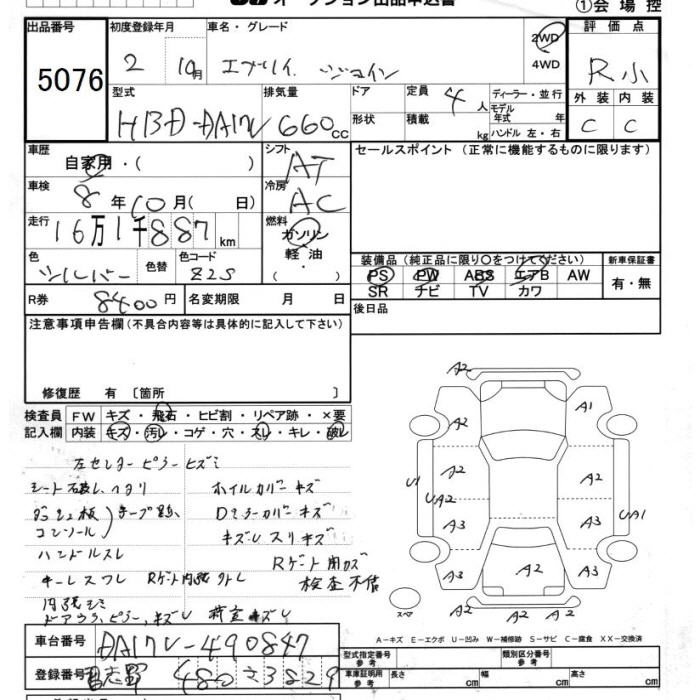 オークション出品申込書
①会場控
出品番号 5076
初度登録年月 2 10月
車名・グレード エブリイ ジョイン
2WD
4WD
評価点 R小
型式 HBD-DA17V
排気量 660cc
ドア
形状
定員 4人
積載 kg
ディーラー・並行
モデル年式 年
ハンドル 左・右
外装 内装
C C
車歴 自家用・( )
シフト AT
セールスポイント(正常に機能するものに限ります)
車検 8年10月( 日)
冷房 AC
走行 16万1千887km
燃料 ガソリン
軽油・
( )
色 シルバー
色替
色コード Z2S
装備品(純正品に限り○をつけてください)
新車保証書
PS PW ABS エアB AW
SR ナビ TV カワ
有・無
R券 8400円
名変期限 月 日
後日品
注意事項申告欄(不具合内容等は具体的に記入して下さい)
修復歴 有〔箇所 〕
検査員記入欄
FW キズ・飛石・ヒビ割・リペア跡・×要
内装 キズ・汚レ・コゲ・穴・スレ・キレ・破レ
左センターピラーヒズミ
シート破レ、ヘタリ
ホイルカバーキズ
ダッシュ板
コンソール
テープ跡
Dミラーカバーキズ
キズレスリキズ
ハンドルスレ
Rゲート開カズ
キーレスフレ
Rゲート内張クトレ
検査不備
内張シミ
ドアウラ、ピラー、キズレ
荷室キズレ
A2
A2 A1
A2 A2 A2
U1 UA2 UA1
A3 A2 A3
A3 A2 A3
A2
スペア
A-キズ E-エクボ U-凹み W-補修跡 S-サビ C-腐食 XX-交換済
車台番号 DA17V-490847
登録番号 習志野 480 さ 3829
型式指定番号 参考
類別区分番号 参考
車庫証明用 参考
長さ cm 幅 cm 高さ cm